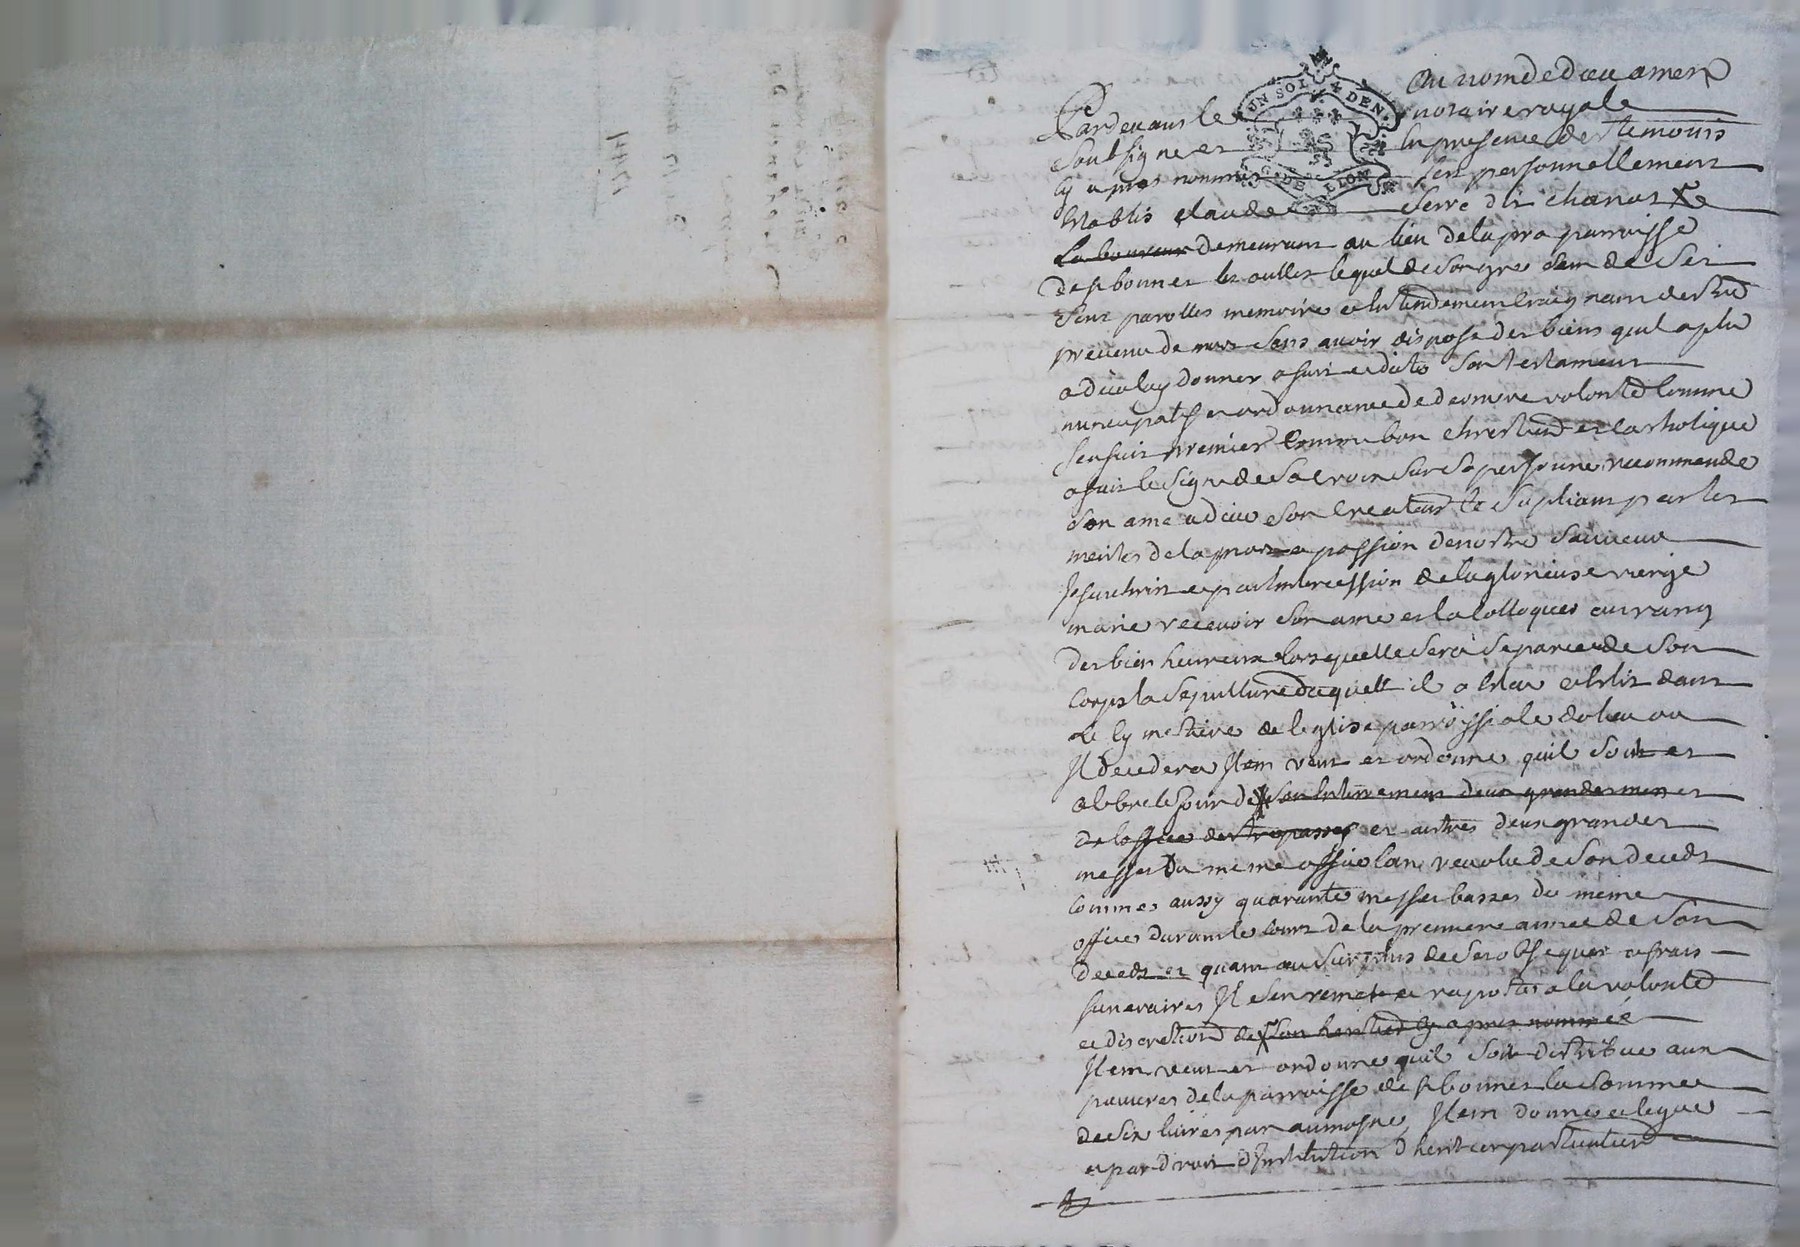 Au nom de dieu amen
Pardevant le notaire royale
Soubsigne et en presence des temoins
cy apres nommes fut personnellement
etably claude Serre dit chanat
Laboureur demeurant au lieu de la pra parroisse
de St bonnet lequel de son gre Sain de Ses
Sens parolles memoire et entendement craignant destre
prevenu de mort Sans avoir dispose des biens quil a plu
a dieu luy donner a fait et dicte Son testament
nuncupatif et ordonnance de derniere volonté comme
Sensuit premier comme bon chrestien et catholique
a fait le Signe de la croix Sur Sa personne recommende
Son ame a dieu Son Createur le Supliant par les
merites de la mort et passion de nostre Sauveur
Jesuchrist et par lintercession de la glorieuse vierge
marie recevoir Son ame et la colloquer au rang
des bien heureux lors quelle Sera Separee de Son
Corps la Sepulture duquel il a elue et elit dans
le cymetiere de leglise parroissiale du lieu ou
Il decedera Item veut et ordonne quil Soit
celebre le jour de Son enterrement deux grandes messes
de loffice des trepasses et autres deux grandes
messes du meme office lan revolu de Son decedz
comme aussy quarante messes basses du meme
office durant le cours de la premiere annee de Son
decedz et quant au Surplus de Ses obseques et frais
funeraires Il Sen remet et raporte a la volonté
et discretion de Son heritier cy apres nommé
Item veut et ordonne quil Soit distribue aux
pauvres de la parroisse de St bonnet la Somme
de Six livres par aumosne, Item donne et legue
et par droit dInstitution dheritier particulier
UN SOL 4 DEN.
G. DE LION
1741